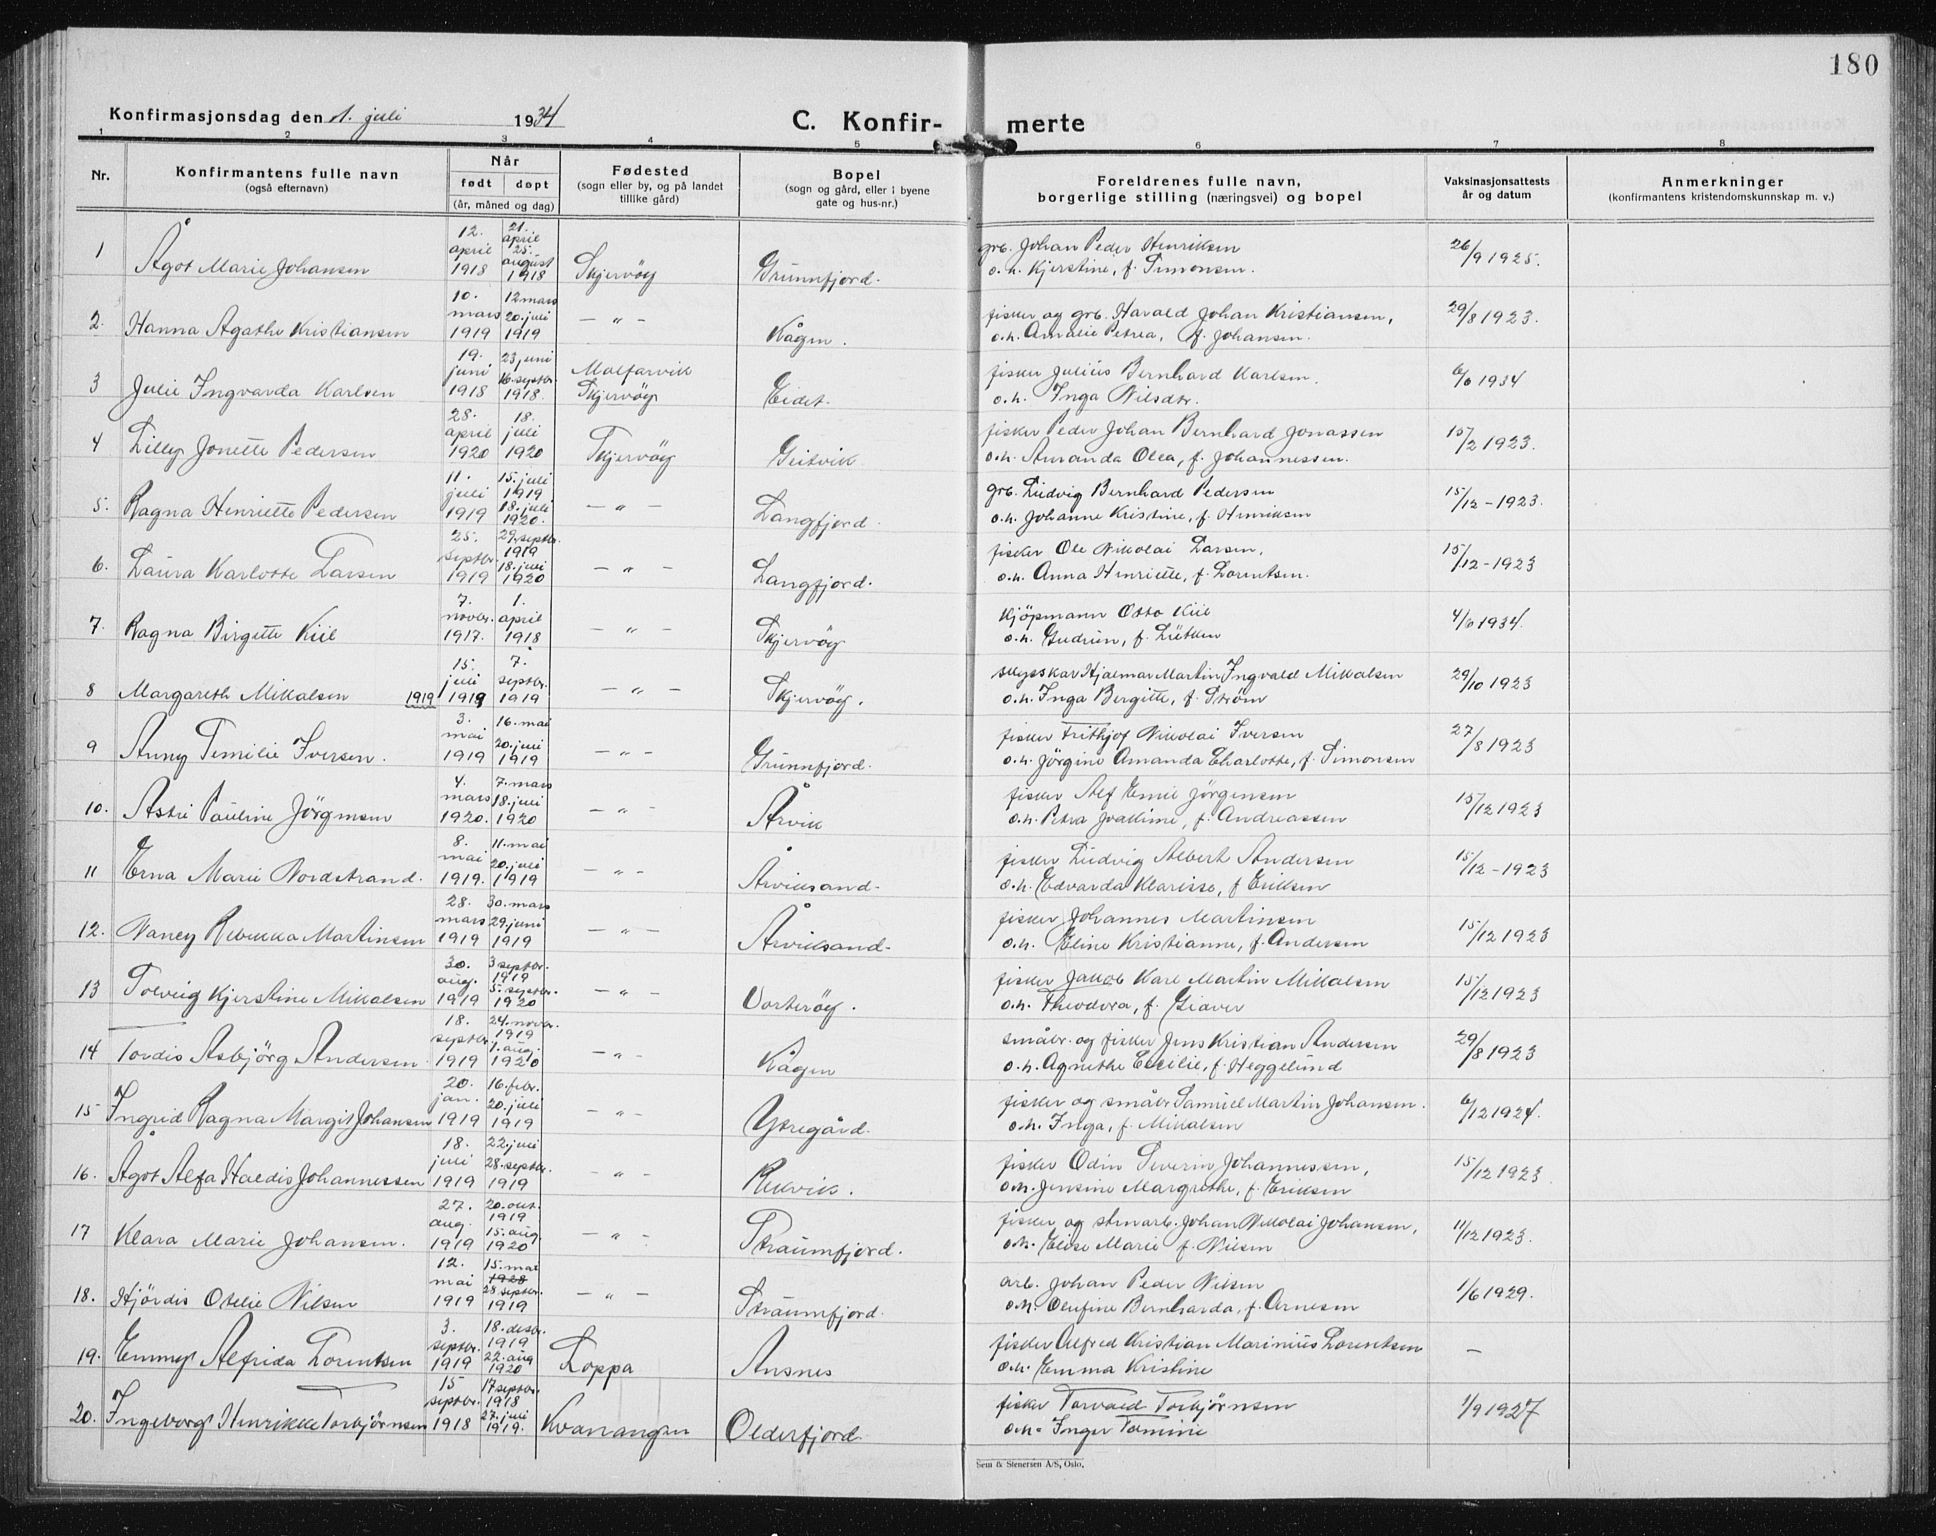 180
Konfirmasjonsdag den 1. juli 1934
C. Konfir- merte
1 2 3 4 5 6 7 8
Nr.
Konfirmantens fulle navn
(også efternavn)
Når
født døpt
(år, måned og dag)
Fødested
(sogn eller by, og på landet
tillike gård)
Bopel
(sogn og gård, eller i byene
gate og hus-nr.)
Foreldrenes fulle navn,
borgerlige stilling (næringsvei) og bopel
Vaksinasjonsattests
år og datum
Anmerkninger
(konfirmantens kristendomskunnskap m. v.)
1 Ågot Marie Johansen
12. april 1918
21. april 25. august 1918
Skjervöy
Grunnfjord.
grb. Johan Peder Henriksen
o.h. Kjerstine, f. Simonsen.
26/9 1925.
2. Hanna Agathe Kristiansen
10. mars 1919
12 mars 20. juli 1919
— " —
Kågen.
fisker og grb. Harald Johan Kristiansen,
o.h. Amalie Petrea, f. Johansen.
29/8 1923.
3 Julie Ingvarda Karlsen
19. juni 1918
23. juni 16. septbr. 1918.
Skjervöy
Eidet.
fisker Julius Bernhard Karlsen.
o.h. Inga Nilsdtr.
6/6 1934
4 Lilly Jonette Pedersen
28. april 1920
18. juli 1920
Skjervöy
Geitvik
fisker Peder Johan Bernhard Jonassen
o.h. Amanda Olea, f. Johannessen.
15/2 1923.
5. Ragna Henriette Pedersen
11. juli 1919
15. juli 1919 18. juli 1920.
— " —
Langfjord.
grb. Ludvig Bernhard Pedersen
o.h. Johanne Kristine, f. Henriksen
15/12 - 1923.
6. Laura Karlotte Larsen
25. septbr. 1919
29. septbr. 1919 18. juli 1920
— " —
Langfjord.
fisker Ole Nikolai Larsen,
o.h. Anna Henriette, f. Lorentsen.
15/12 - 1923
7. Ragna Birgitte Kiil
7. novbr. 1917.
1. april 1918
— " —
Skjervöy
Kjöpmann Otto Kiil
o.h. Gudrun, f. Lütken
4/6 1934.
8 Margareth Mikalsen 1919
15. juli 1919
7. septbr. 1919
— " —
Skjervöy.
skysskar Hjalmar Martin Ingvald Mikalsen
o.h. Inga Bergitte, f. Ström
29/10 1923
9 Anny Temilie Iversen.
3. mai 1919
16. mai 20. juli 1919
— " —
Grunnfjord.
fisker Frithjof Nikolai Iversen
o.h. Jörgine Amanda Charlotte, f. Simonsen
27/8 1923
10. Astri Pauline Jörgensen
4. mars 1920.
7. mars 18. juli 1920
— " —
Årvik
fisker Alf Emil Jörgensen
o.h. Petra Joakime, f. Andreassen
15/12 1923
11 Erna Marie Nordstrand.
8. mai 1919.
11. mai 20. juli 1919
— " —
Årviksand.
fisker Ludvig Albert Andersen
o.h. Edvarda Klarisse, f Eriksen
15/12 - 1923
12. Nancy Rebekka Martinsen
28. mars 1919
30. mars 29. juni 1919
— " —
Årviksand.
fisker Johannes Martinsen
o.h. Eline Kristianne, f. Andersen
15/12 1923
13 Solveig Kjerstine Mikalsen
30. aug. 1919
3 septbr. 1919 5. septbr. 1920
— " —
Vorteröy.
fisker Jakob Karl Martin Mikalsen
o.h. Theodora, f. Giæver
15/12 1923
14 Tordis Asbjörg Andersen
18. septbr. 1919
24. novbr. 1919 1. aug. 1920
— " —
Kågen
småbr. og fisker Jens Kristian Andersen
o.h. Agnethe Cecilie, f. Heggelund
29/8 1923
15 Ingrid Ragna Margit Johansen
20. jan. 1919
16. febr. 20. juli 1919
— " —
Ytregård.
fisker og småbr. Samuel Martin Johansen.
o.h. Inga, f. Mikalsen
6/12 1924.
16. Ågot Alfa Haldis Johannessen
18. juli 1919
22. juli 28. septbr. 1919
— " —
Rekvik.
fisker Odin Severin Johannessen,
o.h. Jensine Margrethe, f. Eriksen
15/12 1923
17 Klara Marie Johansen.
27. aug. 1919
20. okt. 1919 15. aug. 1920
— " —
Straumfjord.
fisker og stenarb. Johan Nikolai Johansen,
o.h. Elise Marie f. Nilsen
11/12 1923.
18. Hjördis Otelie Nilsen
12. mai 1919
15. mai 1928 28 septbr. 1919
— " —
Straumfjord.
arb. Johan Peder Nilsen
o.h. Olufine Bernharda, f. Arnesen
1/6 1929.
19. Emmy Alfrida Lorentsen
3. septbr. 1919
18. desbr. 1919 22. aug 1920
Loppa
Ansnes
fisker Alfred Kristian Marinius Lorentsen
o.h. Emma Kristine
—
20. Ingeborg Henrikke Torbjørnsen
15 septbr. 1918
17 septbr. 1918 27. juli 1919.
Kvænangen
Olderfjord.
fisker Torvald Torbjørnsen
o.h. Inger Tomine
1/9 1927
Sem & Stenersen A/S, Oslo.